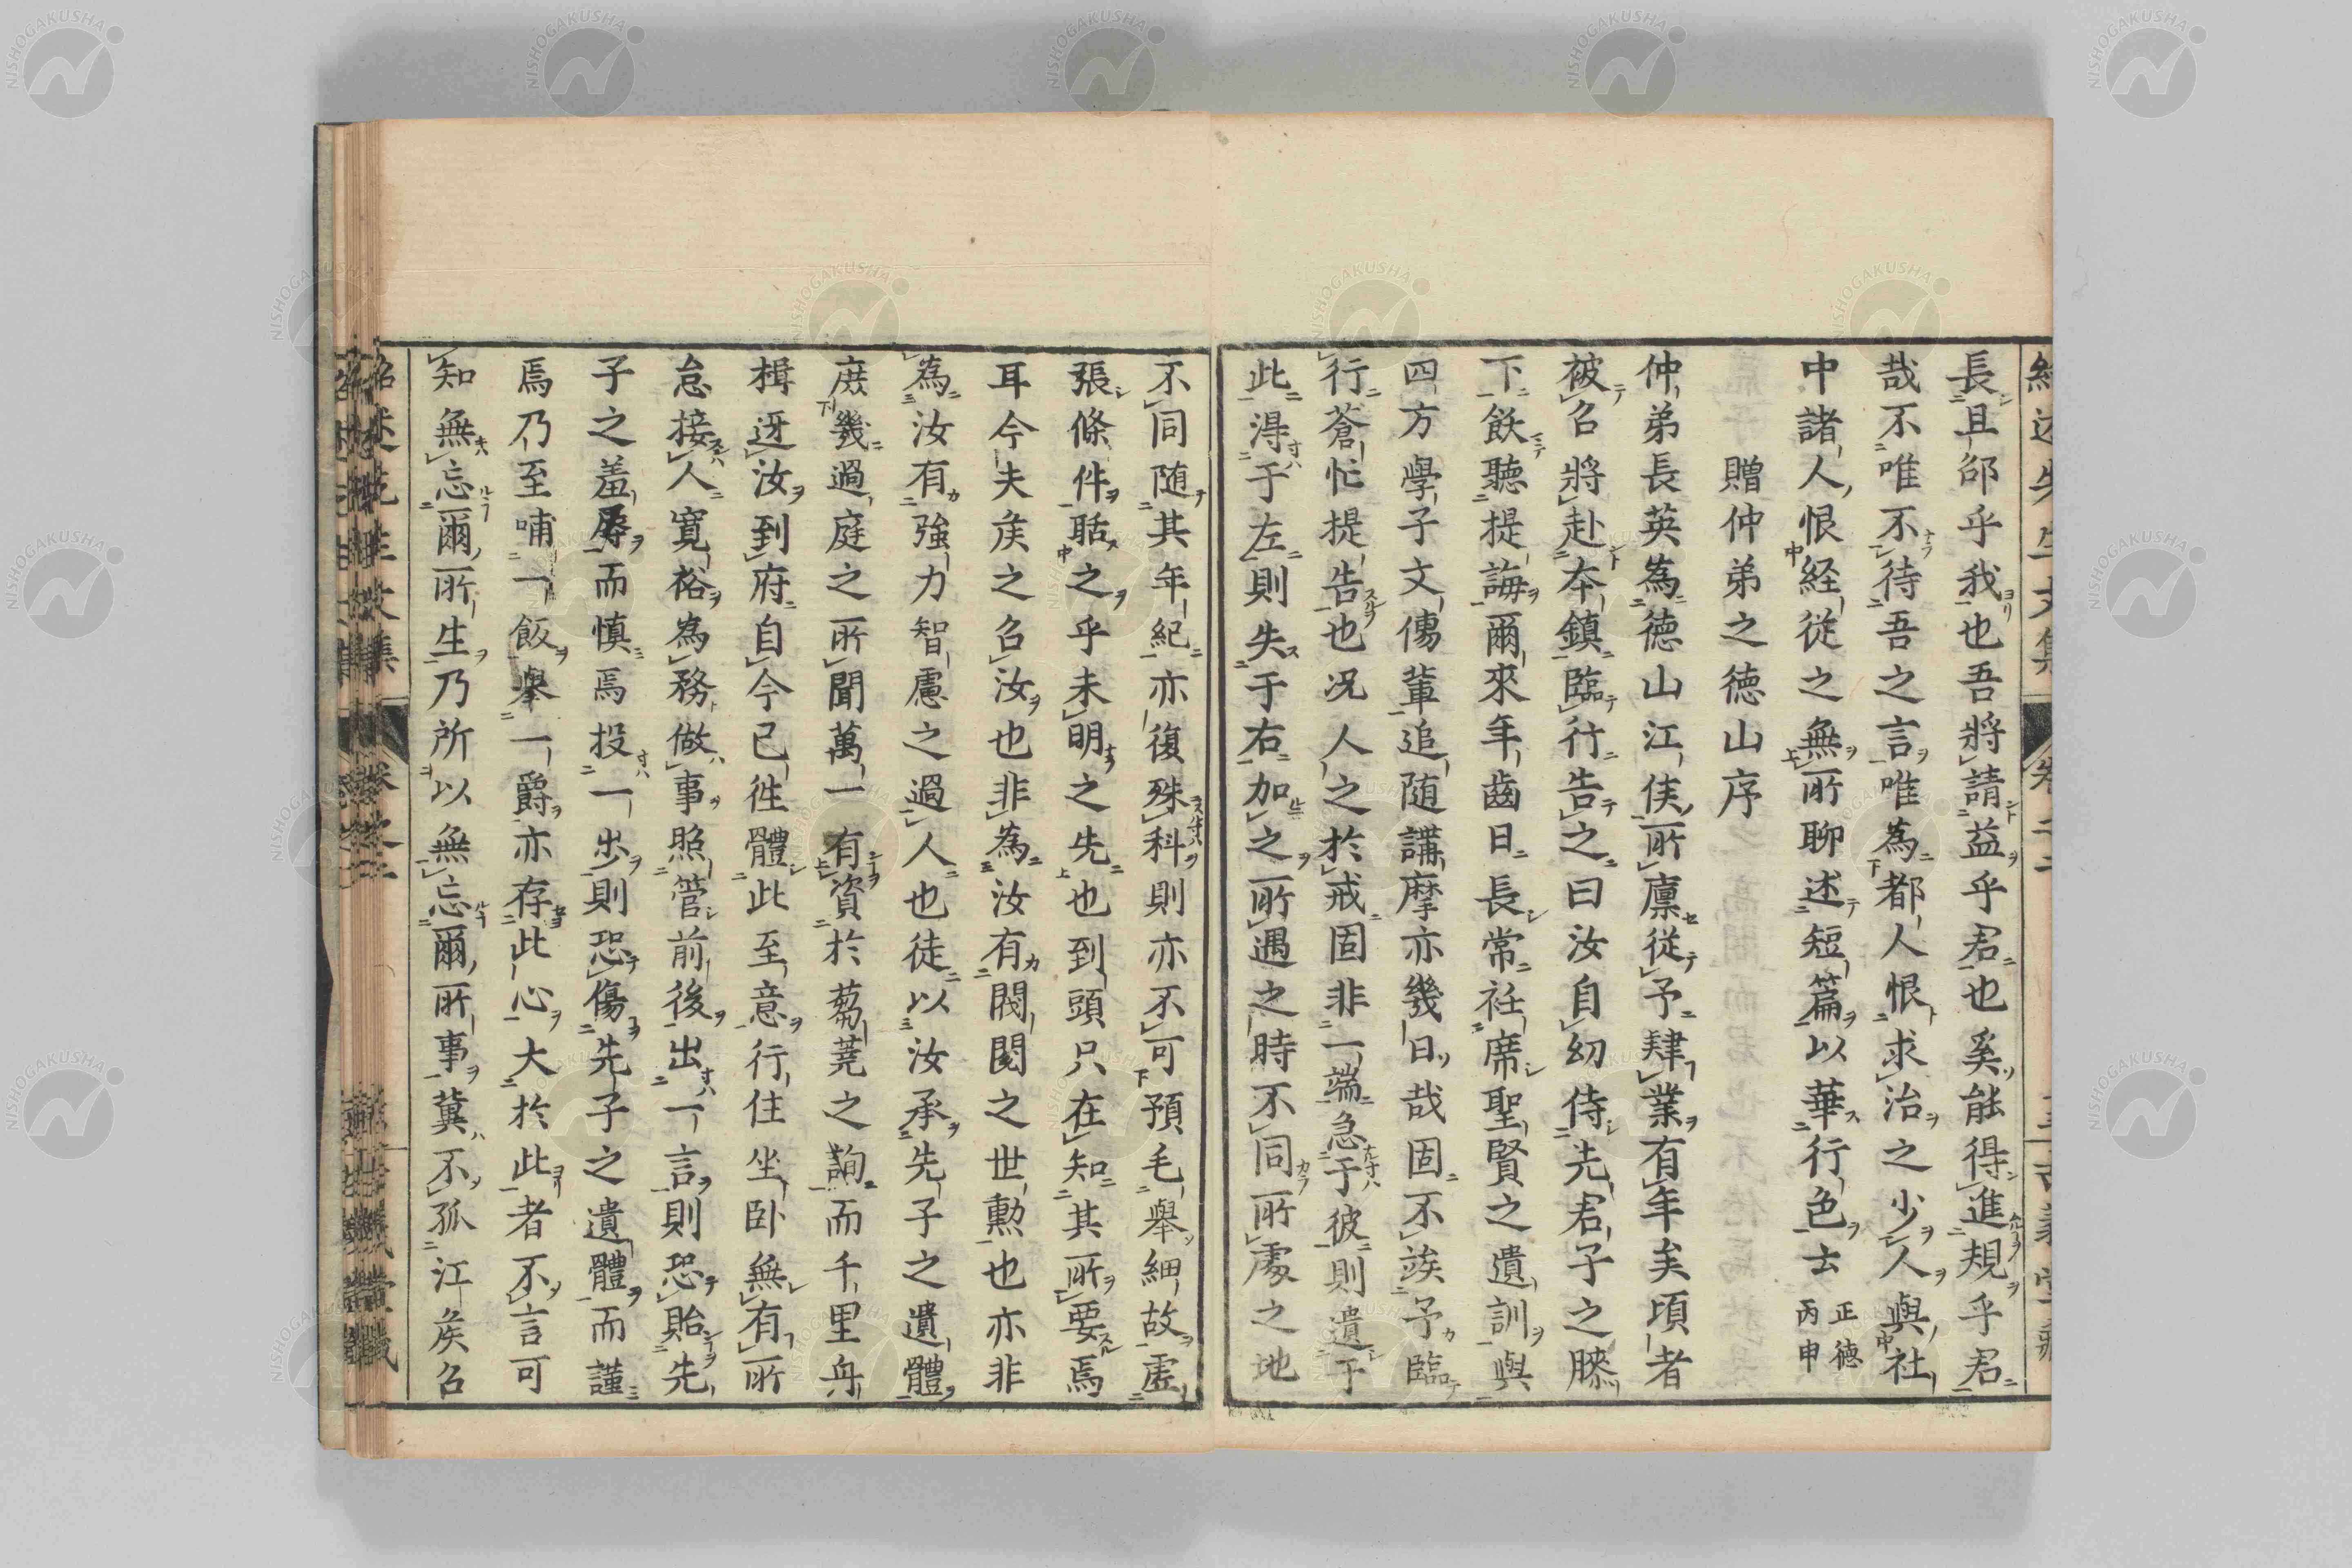 長且邵乎我也吾將請益乎君也奚能得進規乎君
哉不唯不待吾之言唯為都人恨求治之少人與社
中諸人恨経從之無所聊述短篇以華行色云 正德丙申
贈仲弟之德山序
仲弟長英為德山江侯所廪從予肄業有年矣頃者
被召將赴本鎮臨行告之曰汝自幼侍先君子之膝
下飫聽提誨爾來年齒日長常衽席聖賢之遺訓與
四方學子文傳輩追随講摩亦幾日哉固不竢予臨
行蒼忙提告也况人之於戒固非一端急于彼則遺于
此得于左則失于右加之所遇之時不同所處之地
不同随其年紀亦復殊科則亦不可預毛舉細故虛
張條件聒之乎未明之先也到頭只在知其所要焉
耳今夫矦之召汝也非為汝有閥閱之世勲也亦非
為汝有強力智慮之過人也徒以汝承先子之遺體
庶幾過庭之所聞萬一有資於芻蕘之詢而千里舟
楫迓汝到府自今已徃體此至意行住坐卧無有所
怠接人寬裕為務做事照管前後出一言則恐貽先
子之羞辱而慎焉投一步則恐傷先子之遺體而謹
焉乃至哺一飯舉一爵亦存此心大於此者不言可
知無忘爾所生乃所以無忘爾所事冀不孤江矦召